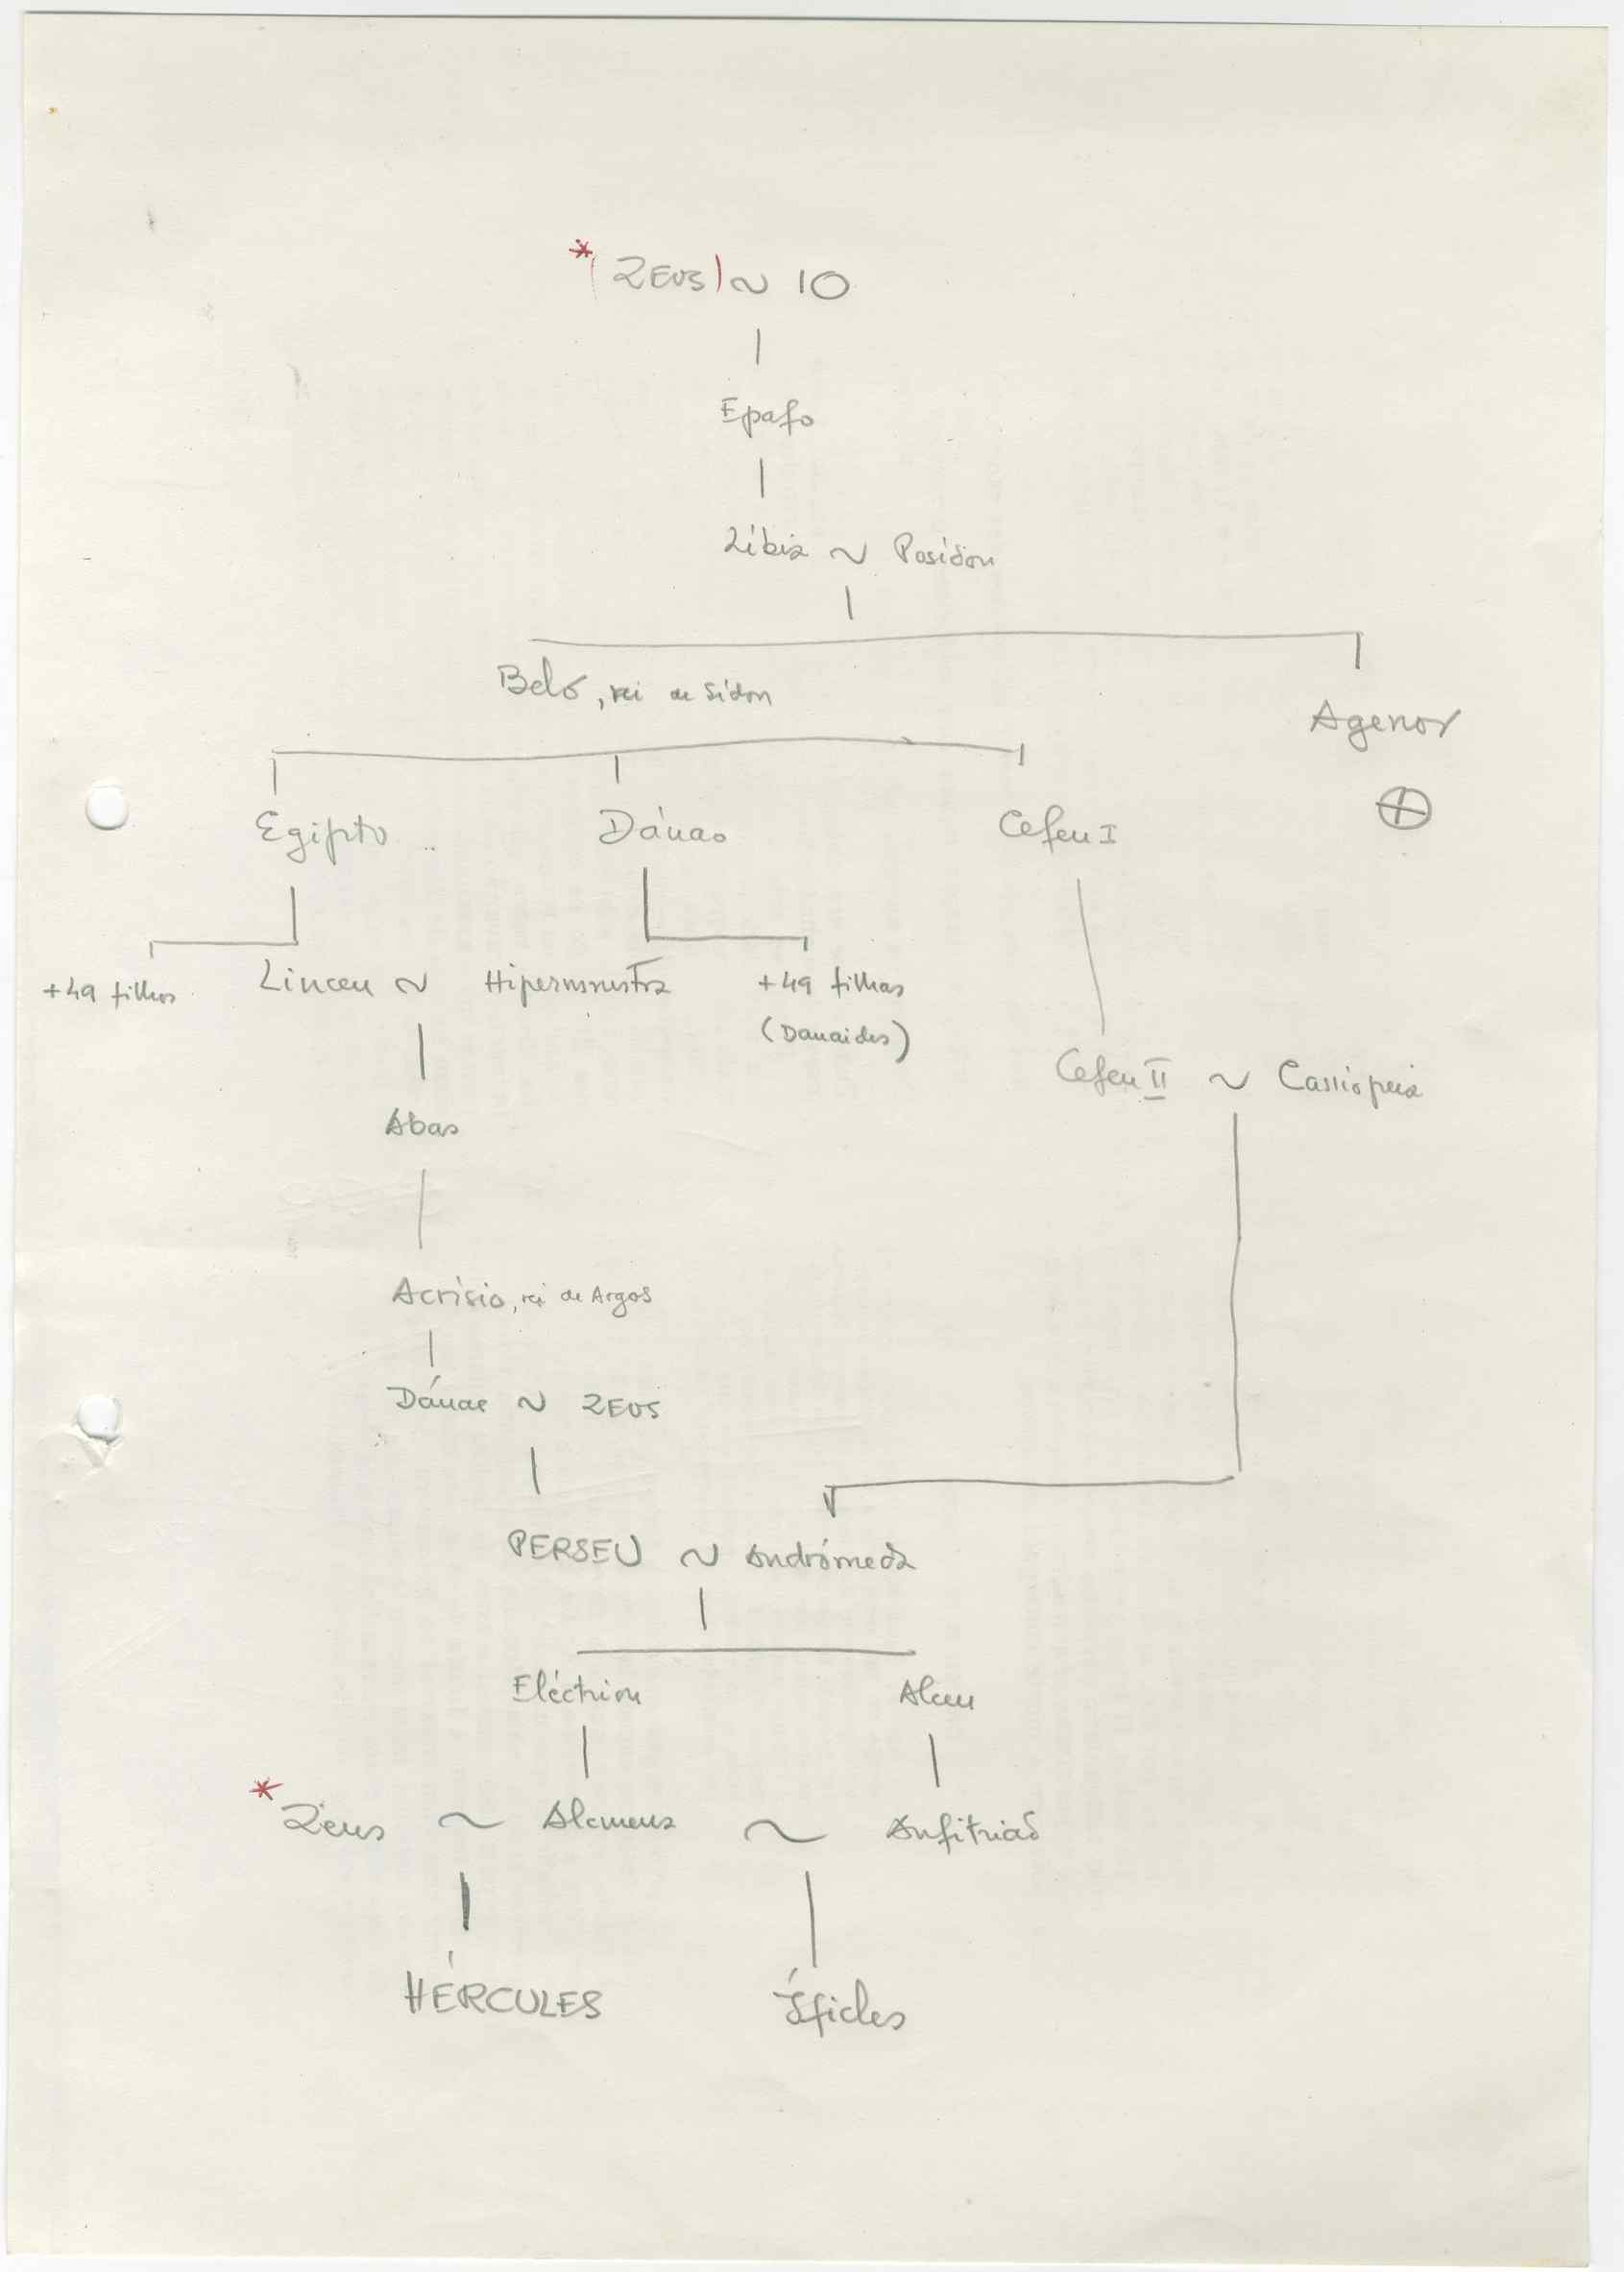 * (ZEUS) ~ IO
Epafo
Líbia ~ Posídon
Belo, rei de Sídon
Agenor
Egipto Dánao Cefeu I
+49 filhos Linceu ~ Hipermnestra +49 filhas
(Danaides)
Cefeu II ~ Cassiopeia
Abas
Acrísio, rei de Argos
Dánae ~ ZEUS
PERSEU ~ Andrómeda
Eléctrion Alceu
* Zeus ~ Alcmena ~ Anfitrião
HÉRCULES Íficles